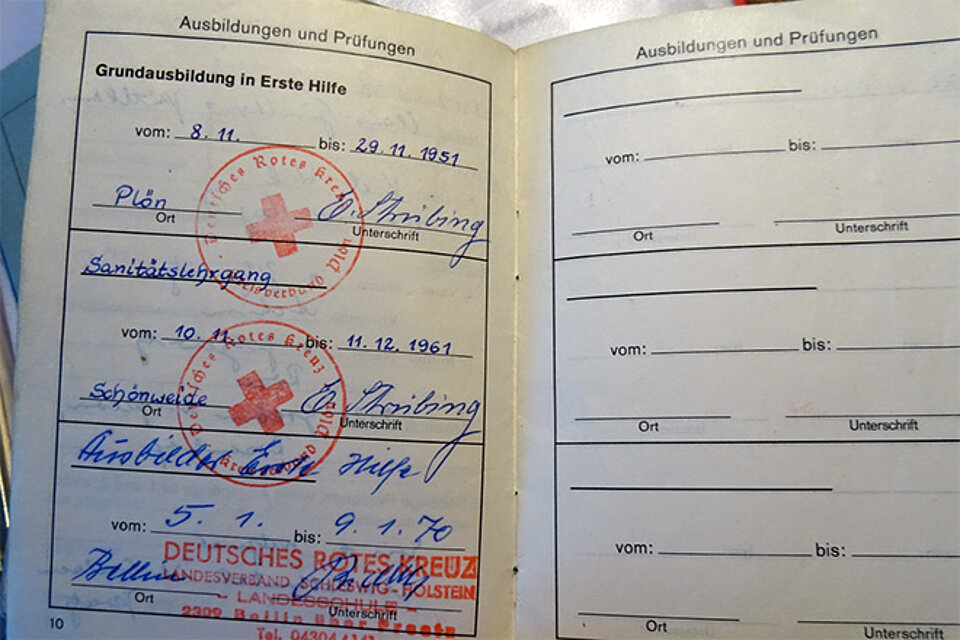 Ausbildungen und Prüfungen
Grundausbildung in Erste Hilfe
vom: 8. 11. bis: 29. 11. 1951
Deutsches Rotes Kreuz
Plön E. Strübing
Ort Unterschrift
Sanitätslehrgang
vom: 10. 11. bis: 11. 12. 1961
Deutsches Rotes Kreuz
Schönweide E. Strübing
Ort Unterschrift
Ausbilder Erste Hilfe
vom: 5. 1. bis: 9. 1. 70
DEUTSCHES ROTES KREUZ
LANDESVERBAND SCHLESWIG-HOLSTEIN
- LANDESSCHULE -
Bellin
Ort Unterschrift
2309 Bellin über Preetz
Tel. 04304
10
Ausbildungen und Prüfungen
vom: bis:
Ort Unterschrift
vom: bis:
Ort Unterschrift
vom: bis:
Ort Unterschrift